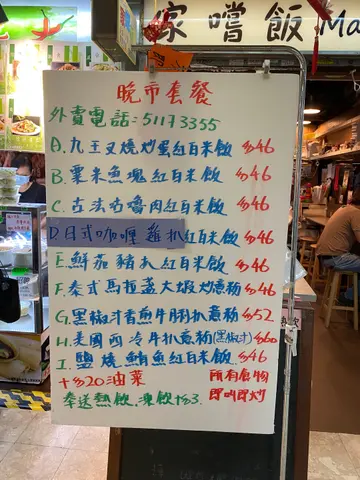 家嚐飯 Ma
晚市套餐
外賣電話:51173355
A. 九王叉燒炒蛋紅白米飯 $46
B. 粟米魚塊紅白米飯 $46
C. 古法咕嚕肉紅白米飯 $46
D. 日式咖喱雞扒紅白米飯 $46
E. 鮮茄豬扒紅白米飯 $46
F. 泰式馬拉盞大蝦炒意粉 $46
G. 黑椒汁香煎牛脷扒意粉 $52
H. 美國西冷牛扒意粉(黑椒汁) $60
I. 鹽燒鯖魚紅白米飯 $46
十$20油菜
奉送熱飲,凍飲加$3.
所有食物
即叫即炒